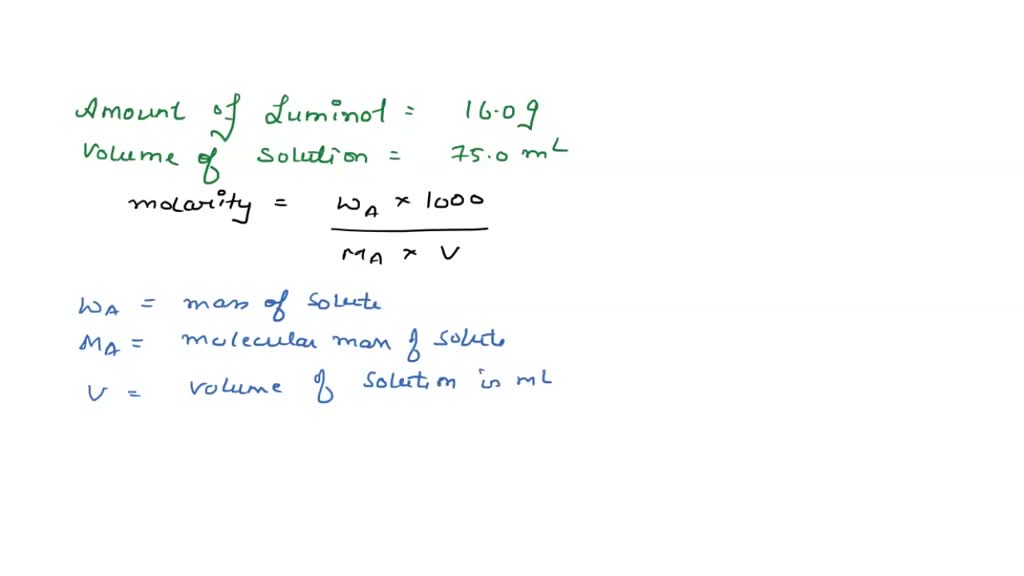 Amount of Luminol = 16.0 g
Volume of solution = 75.0 mL
molarity = WA × 1000
MA × V
WA = mass of solute
MA = molecular mass of solute
V = volume of solution in mL